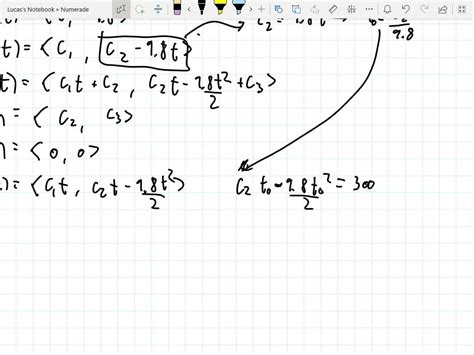 Lucas's Notebook » Numerade
t) = ⟨ C₁, C₂ - 9.8t ⟩
9.8
t) = ⟨ C₁t + C₂, C₂t - 9.8t²/2 + C₃ ⟩
= ⟨ C₂, C₃ ⟩
= ⟨ 0, 0 ⟩
) = ⟨ C₁t, C₂t - 9.8t²/2 ⟩ C₂ t₀ - 9.8t₀²/2 = 300